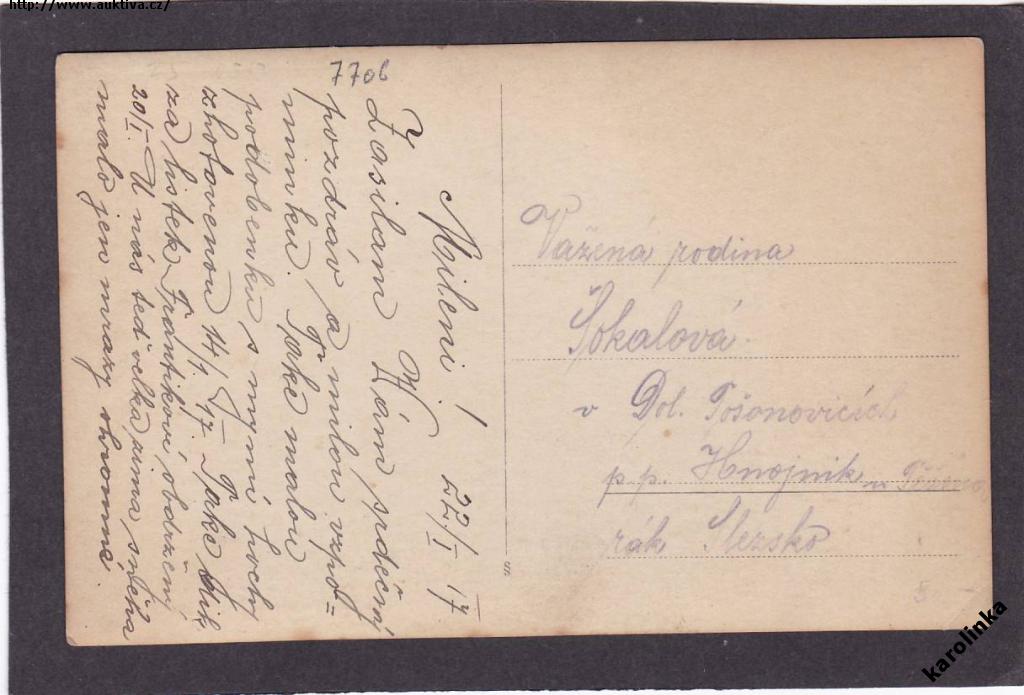 http://www.auktiva.cz/
770b
Mileni! 22/I 17
Zasilam Wám srdečni
pozdráv a milou vzpo=
minku. Také malou
podobenku s mymi hochy
zhotovenou 14/1 17. Také dik
za listek Frantikovi obdrženy
20/I. U nás teď velka zima sněha
malo jen mrazy ohromné.
Vážená rodina
Šokalová
v Dol. Tošonovicích
p.p. Hnojnik
rák Slezsko
S
karolinka